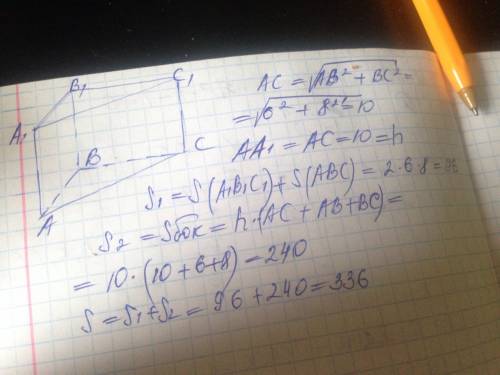 B₁
C₁
A₁
B
C
A
AC = √AB² + BC² =
= √6² + 8² = 10
AA₁ = AC = 10 = h
S₁ = S(A₁B₁C₁) + S(ABC) = 2·6·8 = 96
S₂ = Sбок = h·(AC + AB + BC) =
= 10·(10 + 6 + 8) = 240
S = S₁ + S₂ = 96 + 240 = 336